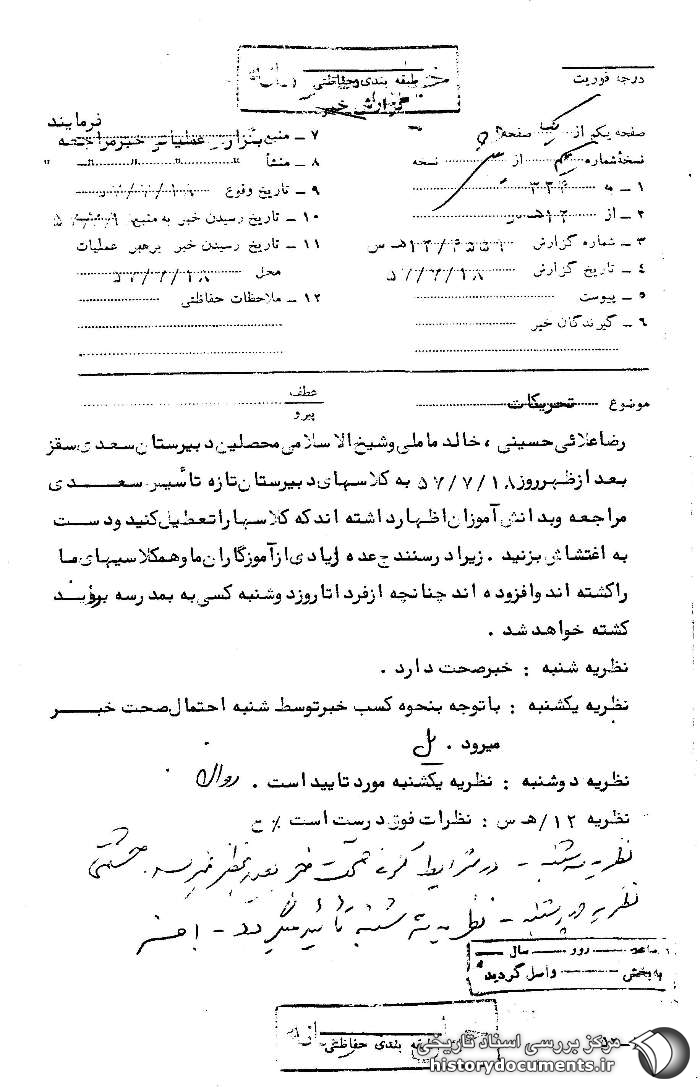 طبقه بندی حفاظتی
گزارش خبر
درجه فوریت
صفحه یکم از یک صفحه
نسخهٔ شماره از نسخه
۱ ـ به ۳۳۴
۲ ـ از ۱۲ هـ س
۳ ـ شماره گزارش ۱۲/۶۵۵۹ هـ س
۴ ـ تاریخ گزارش ۵۷/۷/۱۸
۵ ـ پیوست
۶ ـ گیرندگان خبر
فرمایند
۷ ـ منبع بگزارش عملیاتی خبر مراجعه
۸ ـ منشأ " " "
۹ ـ تاریخ وقوع ۵۷/۷/۱۸
۱۰ ـ تاریخ رسیدن خبر به منبع
۱۱ ـ تاریخ رسیدن خبر برهبر عملیات
محل ۵۷/۷/۱۸
۱۲ ـ ملاحظات حفاظتی
موضوع تحریکات
عطف
پیرو
رضا علائی حسینی ، خالد ماملی و شیخ الاسلامی محصلین دبیرستان سعدی سقز
بعد از ظهر روز ۵۷/۷/۱۸ به کلاسهای دبیرستان تازه تأسیس سعدی
مراجعه و بدانش آموزان اظهار داشته اند که کلاسها را تعطیل کنید و دست
به اغتشاش بزنید . زیرا در سنندج عده زیادی از آموزگاران ما و همکلاسیهای ما
را کشته اند و افزوده اند چنانچه از فردا تا روز دوشنبه کسی به بمدرسه بروید
کشته خواهد شد .
نظریه شنبه : خبر صحت دارد .
نظریه یکشنبه : با توجه بنحوه کسب خبر توسط شنبه احتمال صحت خبر
میرود .
نظریه دوشنبه : نظریه یکشنبه مورد تایید است .
نظریه ۱۲/هـ س : نظرات فوق درست است % ح
نظریه سه شنبه - در شرایط کنونی صحت خبر بعید بنظر نمیرسد. حشمتی
نظریه چهارشنبه - نظریه سه شنبه تأیید میگردد -
ساعت روز سال
به بخش واصل گردید
طبقه بندی حفاظتی
مرکز بررسی اسناد تاریخی
historydocuments.ir